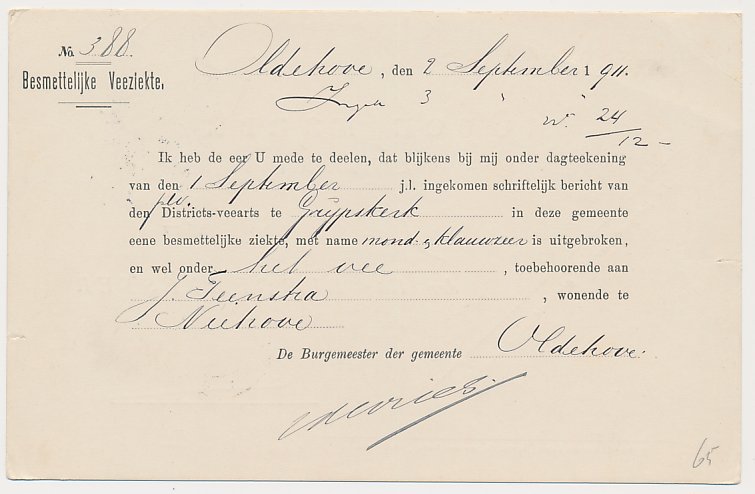 No. 388.
Besmettelijke Veeziekte.
Oldehove, den 2 September 1911.
Ingek 3 " "
N°. 24/12 -
Ik heb de eer U mede te deelen, dat blijkens bij mij onder dagteekening
van den 1 September j.l. ingekomen schriftelijk bericht van
den plv. Districts-veearts te Grijpskerk in deze gemeente
eene besmettelijke ziekte, met name mond- & klauwzeer is uitgebroken,
en wel onder het vee, toebehoorende aan
J. Teenstra, wonende te
Niehove
De Burgemeester der gemeente Oldehove.
65